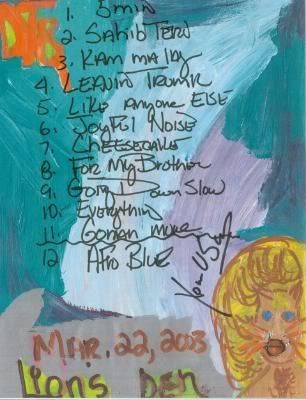 DTB
1. 5min
2. Sahib Teri
3. Kam ma lay
4. Leavin Trunk
5. Like Anyone Else
6. Joyful Noise
7. Cheesecake
8. For My Brother
9. Going Down Slow
10. Everything
11. Gonna move
12 Afro Blue
Mar. 22, 2003
Lions Den